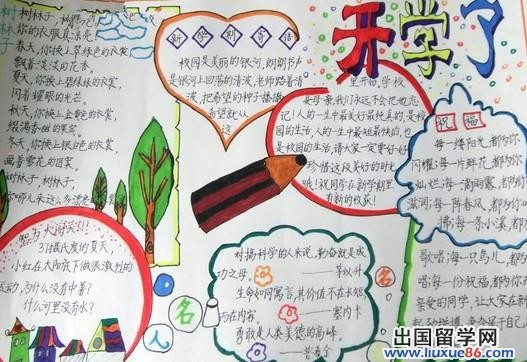 开学了
树林子
树林子,树林子
你的衣服真漂亮
春天,你换上翠绿色的衣裳
飘着淡淡的花香。
夏天,你换上碧绿绿的衣裳
闪着耀眼的光芒
秋天,你换上金黄色的衣裳
缀满香甜的果实
冬天,你换上银白色的衣裳
画着雪花的图案。
树林子,树林子
新学期寄语
校园是美丽的银河,朗朗书声
是银河上回荡的清波,老师踏着清
波,把希望的种子播撒
希望就从
这
里开始,学校
是母亲,我们永远不会把她忘
记!人的一生中最美好最快真的,是校
园的生活,人的一生中最难最快的,也
是校园的生活,请大家一定要
珍惜这段美好的时光
哦!祝同学在新学期里
有新的收获!
祝福
每一缕阳光,都为你
闪耀;每一片鲜花,都为你
灿烂;每一滴雨露,都为你
滋润;每一阵春风,都为你
拂;每一条小溪,都为你
歌唱;每一只鸟儿,都
唱;每一份祝福,都为你
亲爱的同学,让大家在新
智力大闯关!!
37摄氏度的夏天,
小红在太阳底下做很激烈的
运动,为什么没有中暑?
什么河里没有水?
名人名
对搞科学的人来说,勤奋就是成
功之母。
——茅以升
生命如同寓言,其价值不在长短
而在内容。
——塞内卡
勇敢是人类美德的高峰
出国留学网
www.liuxue86.com